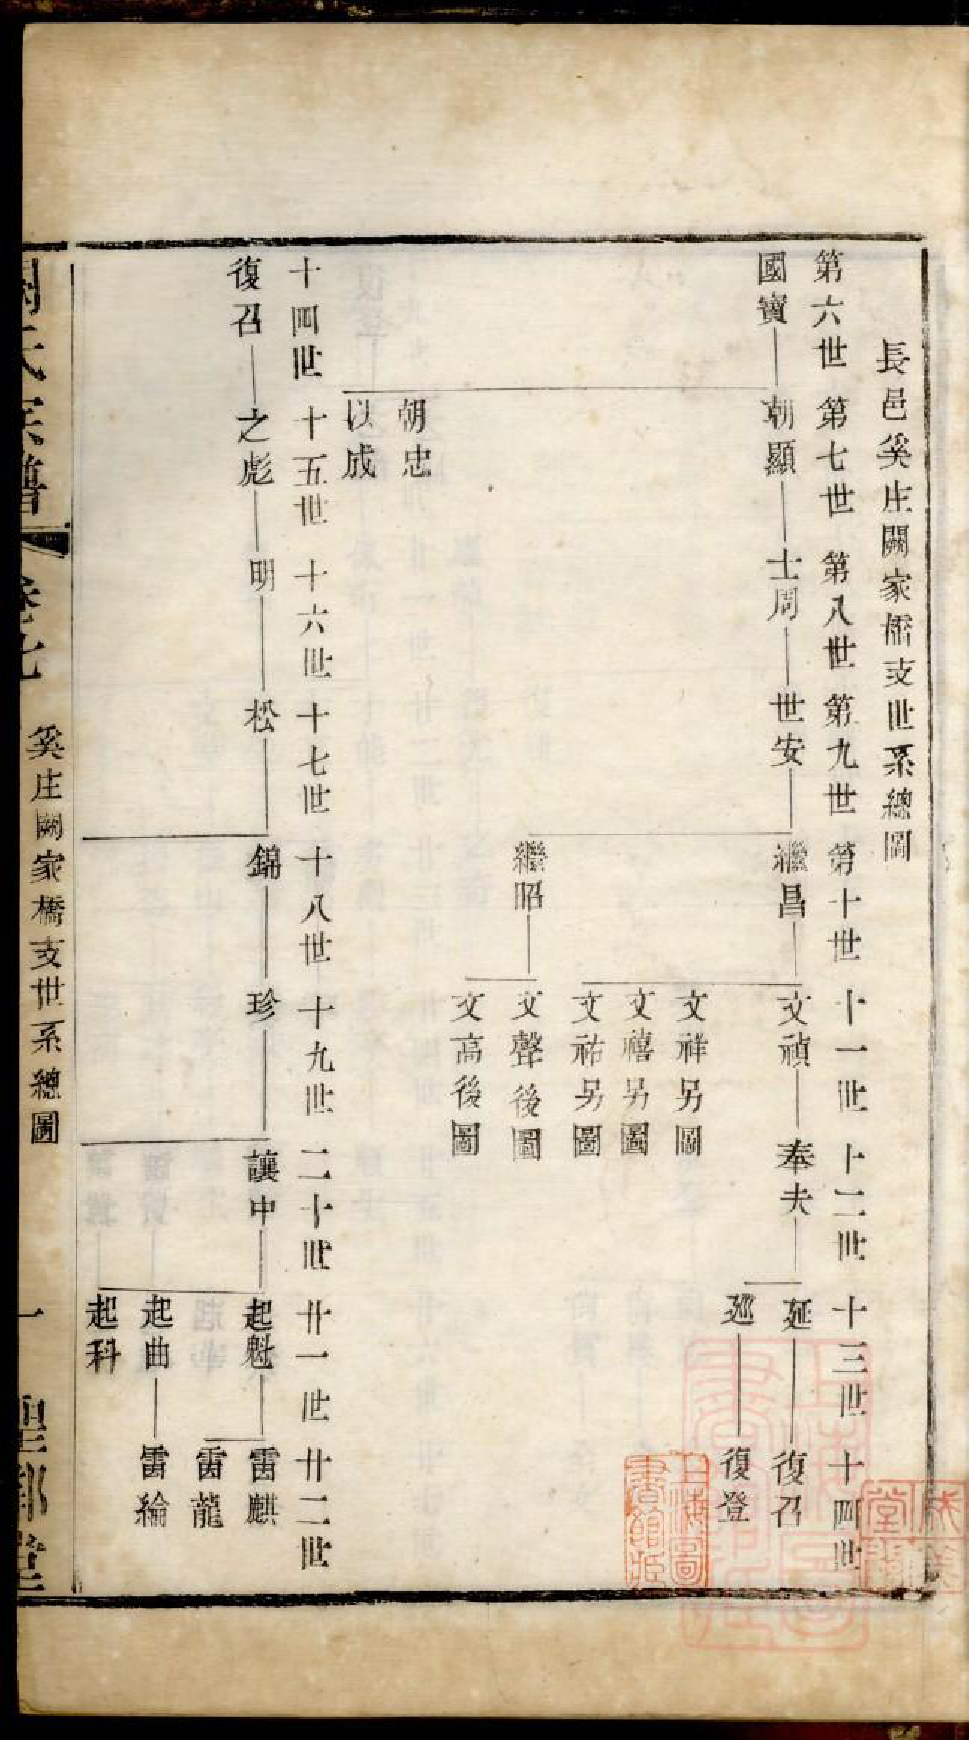 長邑奚庄闕家橋支世系總圖
第六世 第七世 第八世 第九世 第十世 十一世 十二世 十三世 十四世
國寶 朝顯 士周 世安 繼昌 文禎 奉夫 延 復召
巡 復登
文祥另圖
文禧另圖
文祐另圖
繼昭 文聲後圖
文高後圖
朝忠
以成
十四世 十五世 十六世 十七世 十八世 十九世 二十世 廿一世 廿二世
復召 之彪 明 松 錦 珍 讓中 起魁 雷麒
雷龍
起曲 雷綸
起科
闕氏宗譜 卷七 奚庄闕家橋支世系總圖 一